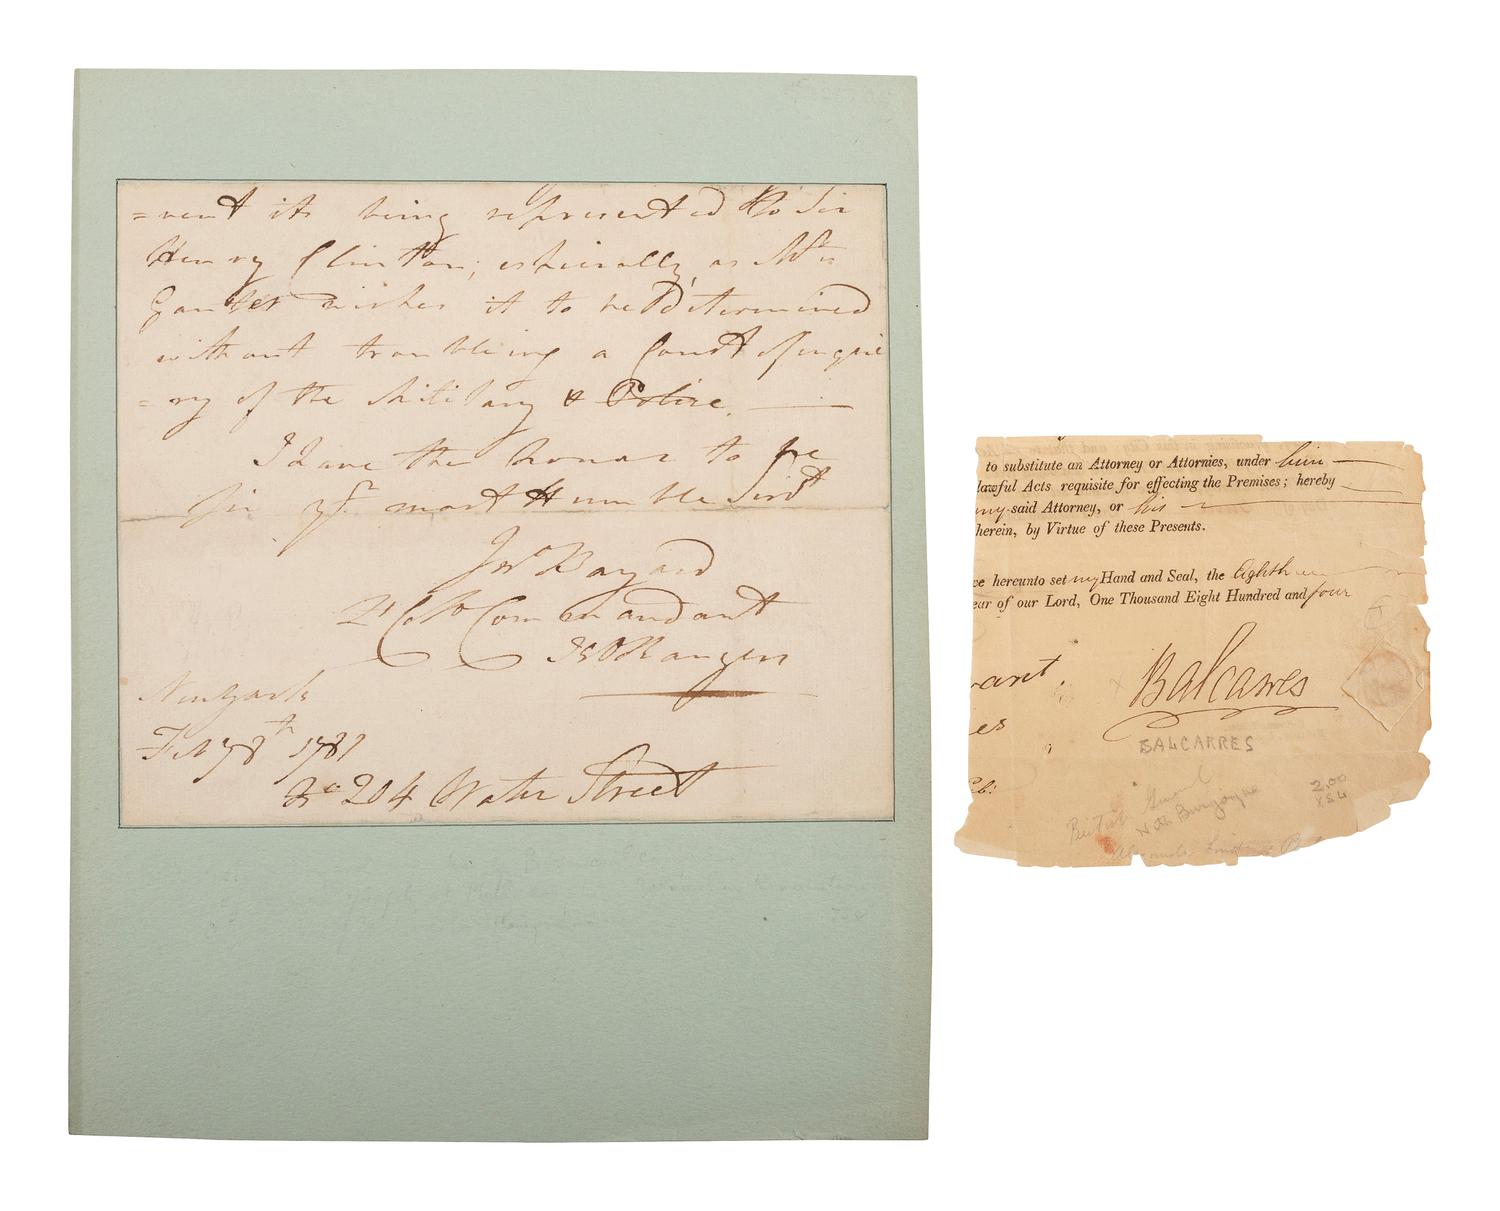 =vent its being represented to Sir
Henry Clinton; especially, as Mrs
wishes it to be determined
without troubleing a Court of inquie
=ry of the Military & Police.
I Have the honor to be
Sir yr. most Humble Servt
Jno Bayard
Lt Col. Commandant
Rangers
Newyork
Feby 8th 1781
No 204 Water Street
to substitute an Attorney or Attornies, under him
lawful Acts requisite for effecting the Premises; hereby
my said Attorney, or his
herein, by Virtue of these Presents.
ve hereunto set my Hand and Seal, the Eighth
ear of our Lord, One Thousand Eight Hundred and four
rant.
es
Balcarres
BALCARRES
British
With Burgoyne
2.00
XSU